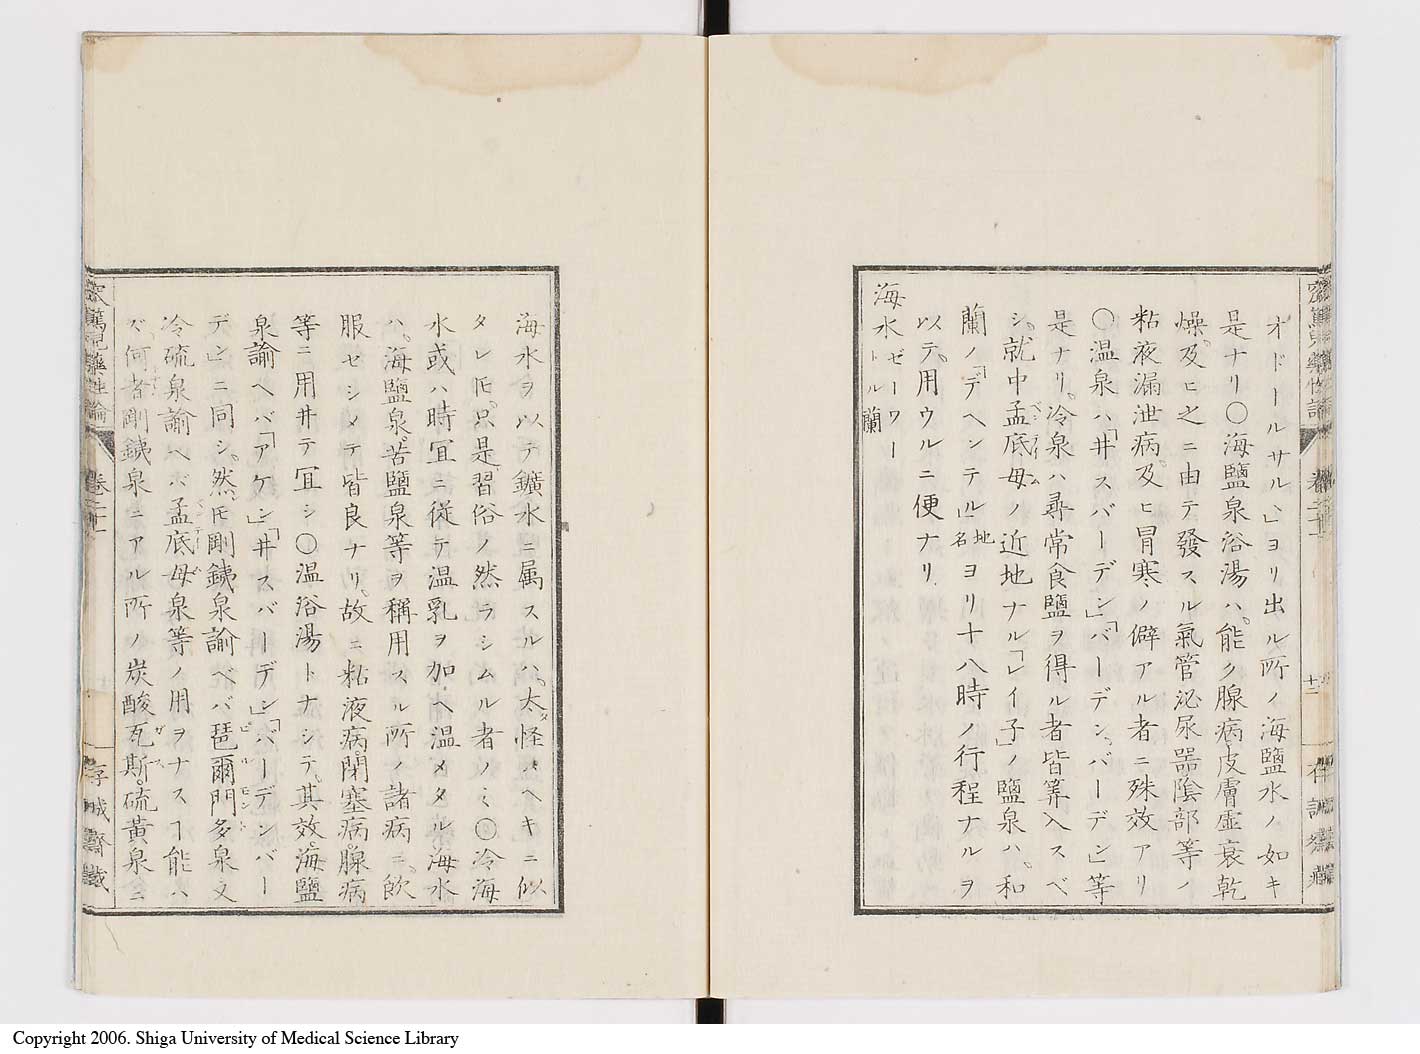 オドールサル、」ヨリ出ル所ノ海鹽水ノ如キ
是ナリ〇海鹽泉浴湯ハ能ク腺病皮膚虚衰乾
燥及ヒ之ニ由テ發スル氣管泌尿噐陰部等ノ
粘液漏泄病及ヒ冒寒ノ僻アル者ニ殊效アリ
〇温泉ハ「井スバーデン」「バーデン、バーデン」等
是ナリ冷泉ハ尋常食鹽ヲ得ル者皆筭入スベ
シ就中孟底母ノ近地ナル「レイ子」ノ鹽泉ハ和
蘭ノ「デヘンテル」地名ヨリ十八時ノ行程ナルヲ
以テ用ウルニ便ナリ
海水 ゼーワートル蘭
海水ヲ以テ鑛水ニ属スルハ太タ怪ムヘキニ似
タレ𪜈只是習俗ノ然ラシムル者ノミ〇冷海
水或ハ時冝ニ従テ温乳ヲ加ヘ温メタル海水
ハ海鹽泉苦鹽泉等ヲ稱用スル所ノ諸病ニ飲
服セシメテ皆良ナリ故ニ粘液病閉塞病腺病
等ニ用井テ冝シ〇温浴湯トナシテ其效海鹽
泉諭ヘバ「アケン」「井スバーデン」「バーデンバー
デン」ニ同シ然𪜈剛銕泉諭ベバ琵爾門多泉又
冷硫泉諭ヘバ孟底母泉等ノ用ヲナスヿ能ハ
ズ何者剛銕泉ニアル所ノ炭酸瓦斯硫黄泉ニ
藥性論 卷二十一
存誠齋藏